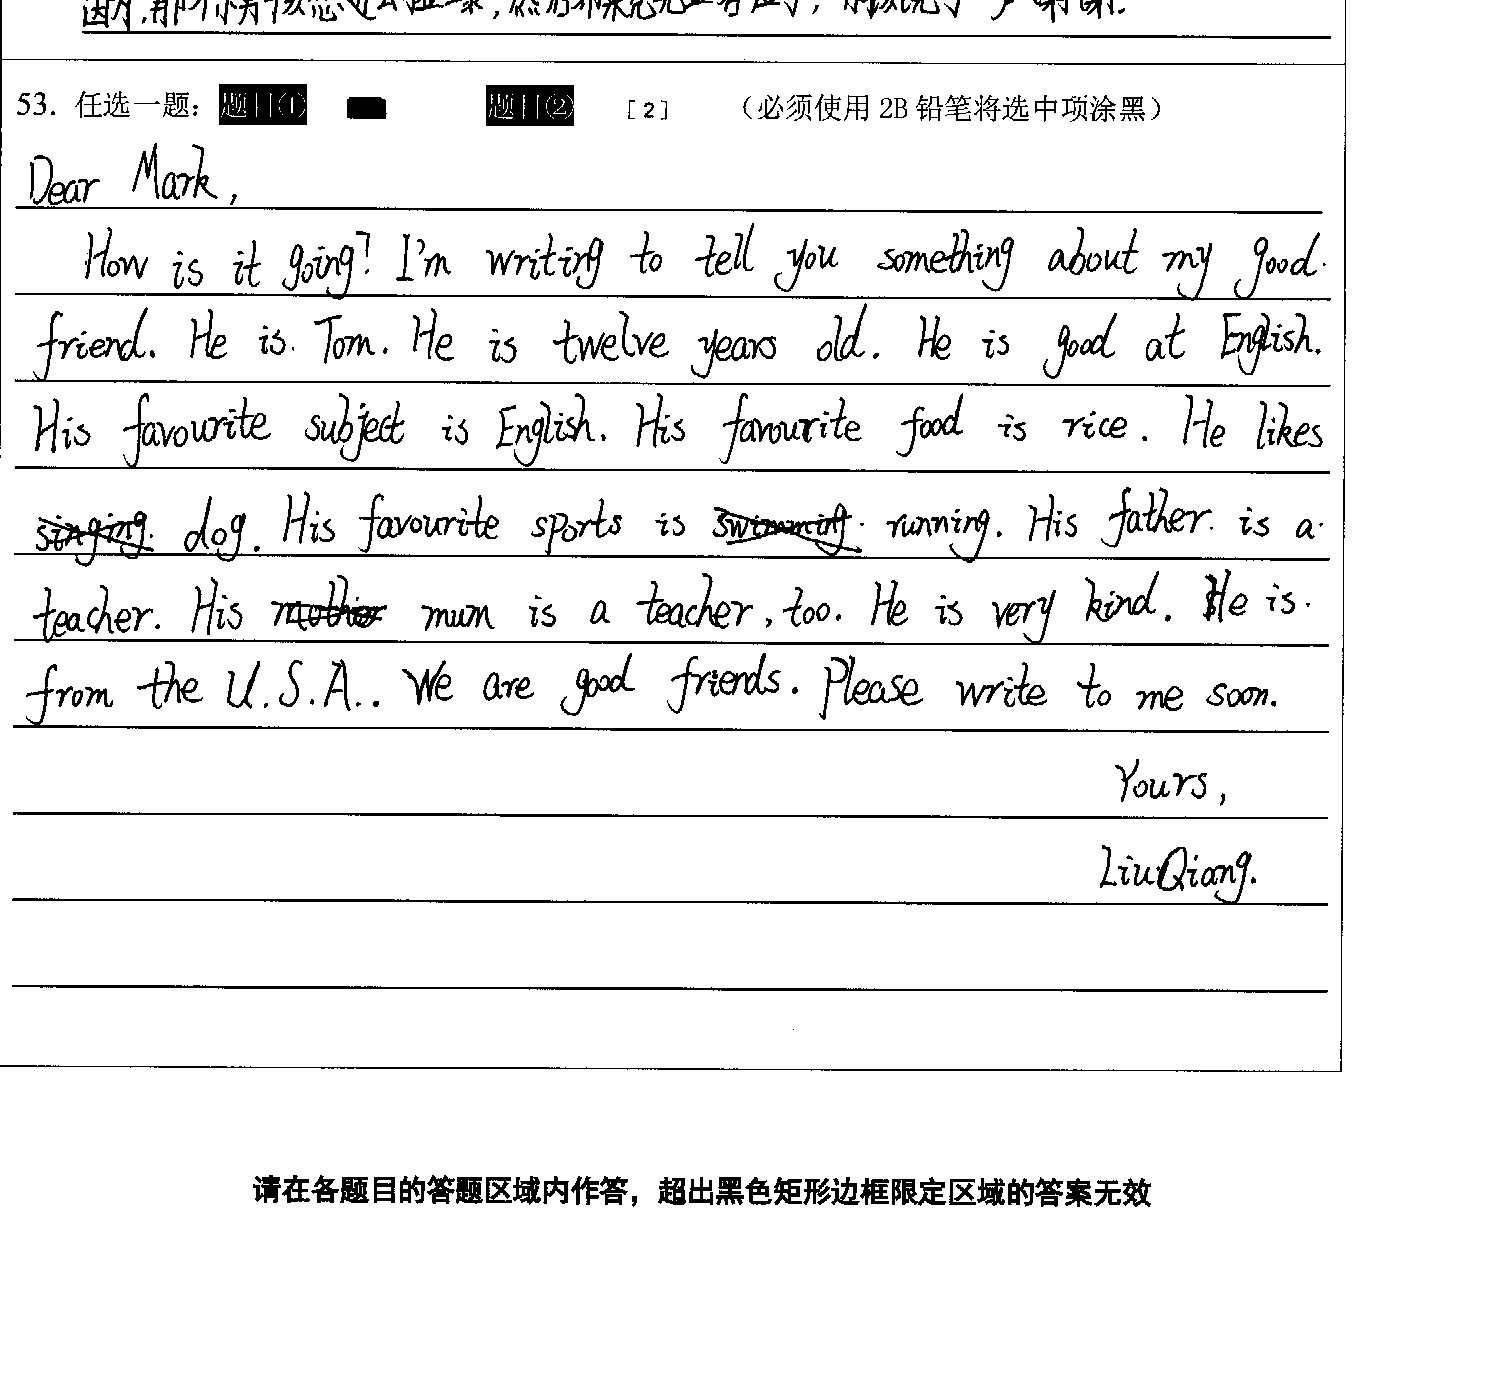 53. 任选一题： 题目① 题目② [2] （必须使用 2B 铅笔将选中项涂黑）
Dear Mark,
How is it going? I'm writing to tell you something about my good
friend. He is Tom. He is twelve years old. He is good at English.
His favourite subject is English. His favourite food is rice. He likes
singing dog. His favourite sports is swimming running. His father is a
teacher. His mother mum is a teacher, too. He is very kind. He is
from the U.S.A.. We are good friends. Please write to me soon.
Yours,
LiuQiang.
请在各题目的答题区域内作答，超出黑色矩形边框限定区域的答案无效